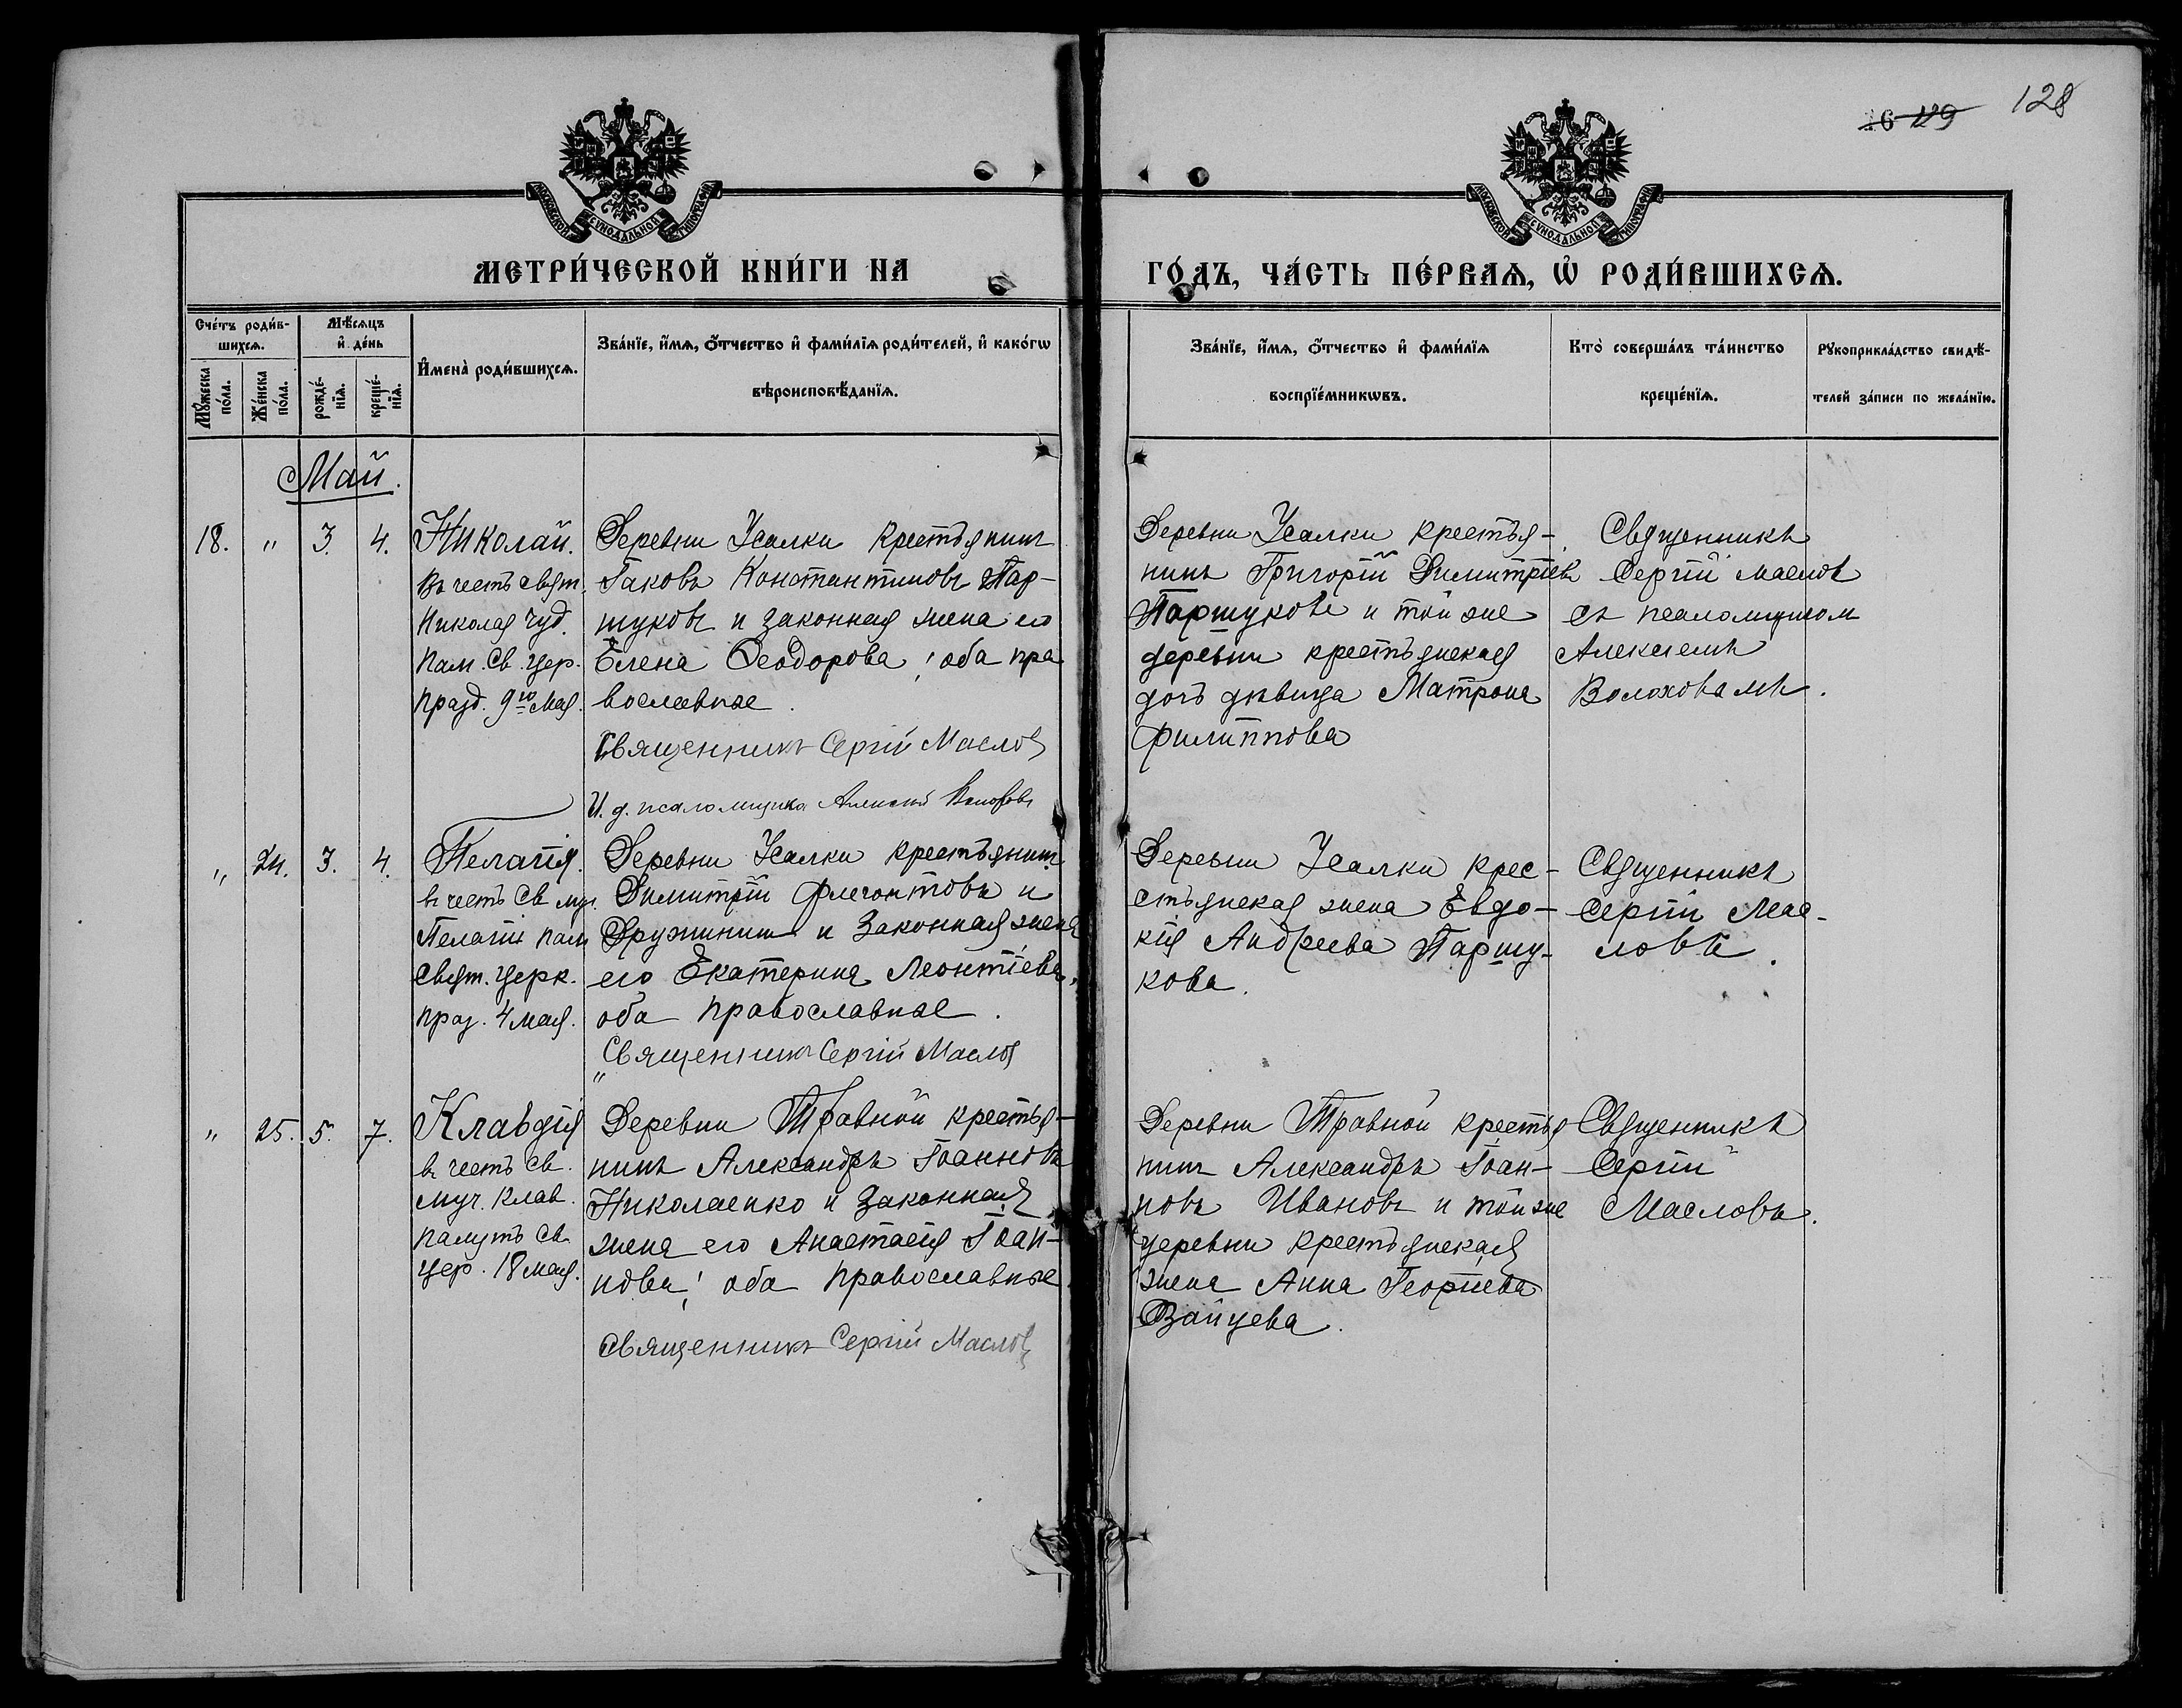 128
129
МОСКОВСКОЙ СѴНОДАЛЬНОЙ ТИПОГРАФІИ
МОСКОВСКОЙ СѴНОДАЛЬНОЙ ТИПОГРАФІИ
МЕТРИ́ЧЕСКОЙ КНИ́ГИ НА
ГО́ДЪ, ЧА́СТЬ ПЕ́РВАѦ, Ѡ҆ РОДИ́ВШИХСѦ.
Сче́тъ роди́в-
шихсѧ.
Мѣ́сѧцъ
и҆ де́нь
Мꙋ́жеска
по́ла.
Же́нска
по́ла.
рожде́-
нїѧ.
креще́-
нїѧ.
И҆мена̀ роди́вшихсѧ.
Зва́нїе, и҆́мѧ, ѻ҆́тчество и҆ фами́лїѧ роди́телей, и҆ како́гѡ
вѣроисповѣ́данїѧ.
Зва́нїе, и҆́мѧ, ѻ҆́тчество и҆ фами́лїѧ
воспрїе́мникѡвъ.
Кто̀ соверша́лъ та́инство
креще́нїѧ.
Рꙋкоприкла́дство свидѣ́-
телей за́писи по жела́нїю.
Май.
18. " 3. 4.
Николай.
Въ честь свят.
Николая Чуд.
Пам. Св. Цер.
Празд. 9го Мая.
Деревни Усалки крестьянинъ
Іаковъ Константиновъ Пар-
шуковъ и законная жена его
Елена Ѳеодорова; оба пра
вославные.
Священникъ Сергій Масловъ
И. д. псаломщика Алексій
Деревни Усалки крестья-
нинъ Григорій Димитріевъ
Паршуковъ и той же
деревни крестьянская
дочь дѣвица Матрона
Филиппова
Священникъ
Сергій Масловъ
съ псаломщиком
Алексеемъ
Волоховамъ.
" 24. 3. 4.
Пелагія.
въ честь Св. муч.
Пелагіи пам.
Свят. Церк.
праз. 4 мая.
Деревни Усалки крестьянинъ
Димитрій Флегонтовъ и
Дружининъ и Законная жена
его Екатерина Леонтіева,
оба православные.
Священникъ Сергій Масловъ
Деревни Усалки крес-
стьянская жена Евдо-
кія Андреева Паршу-
кова.
Священникъ
Сергій Мас-
ловъ.
" 25. 5. 7.
Клавдія
въ честь Св.
муч. Клав.
память Св.
цер. 18 мая.
Деревни Травной крестья-
нинъ Александръ Іоанновъ
Николаенко и Законная
жена его Анастасія Іоан-
нова; оба православные.
Священникъ Сергій Масловъ
Деревни Травной крестья
нинъ Александръ Іоан-
новъ Ивановъ и той же
деревни крестьянская
жена Анна Георгіева
Зайцева.
Священникъ
Сергій
Масловъ.